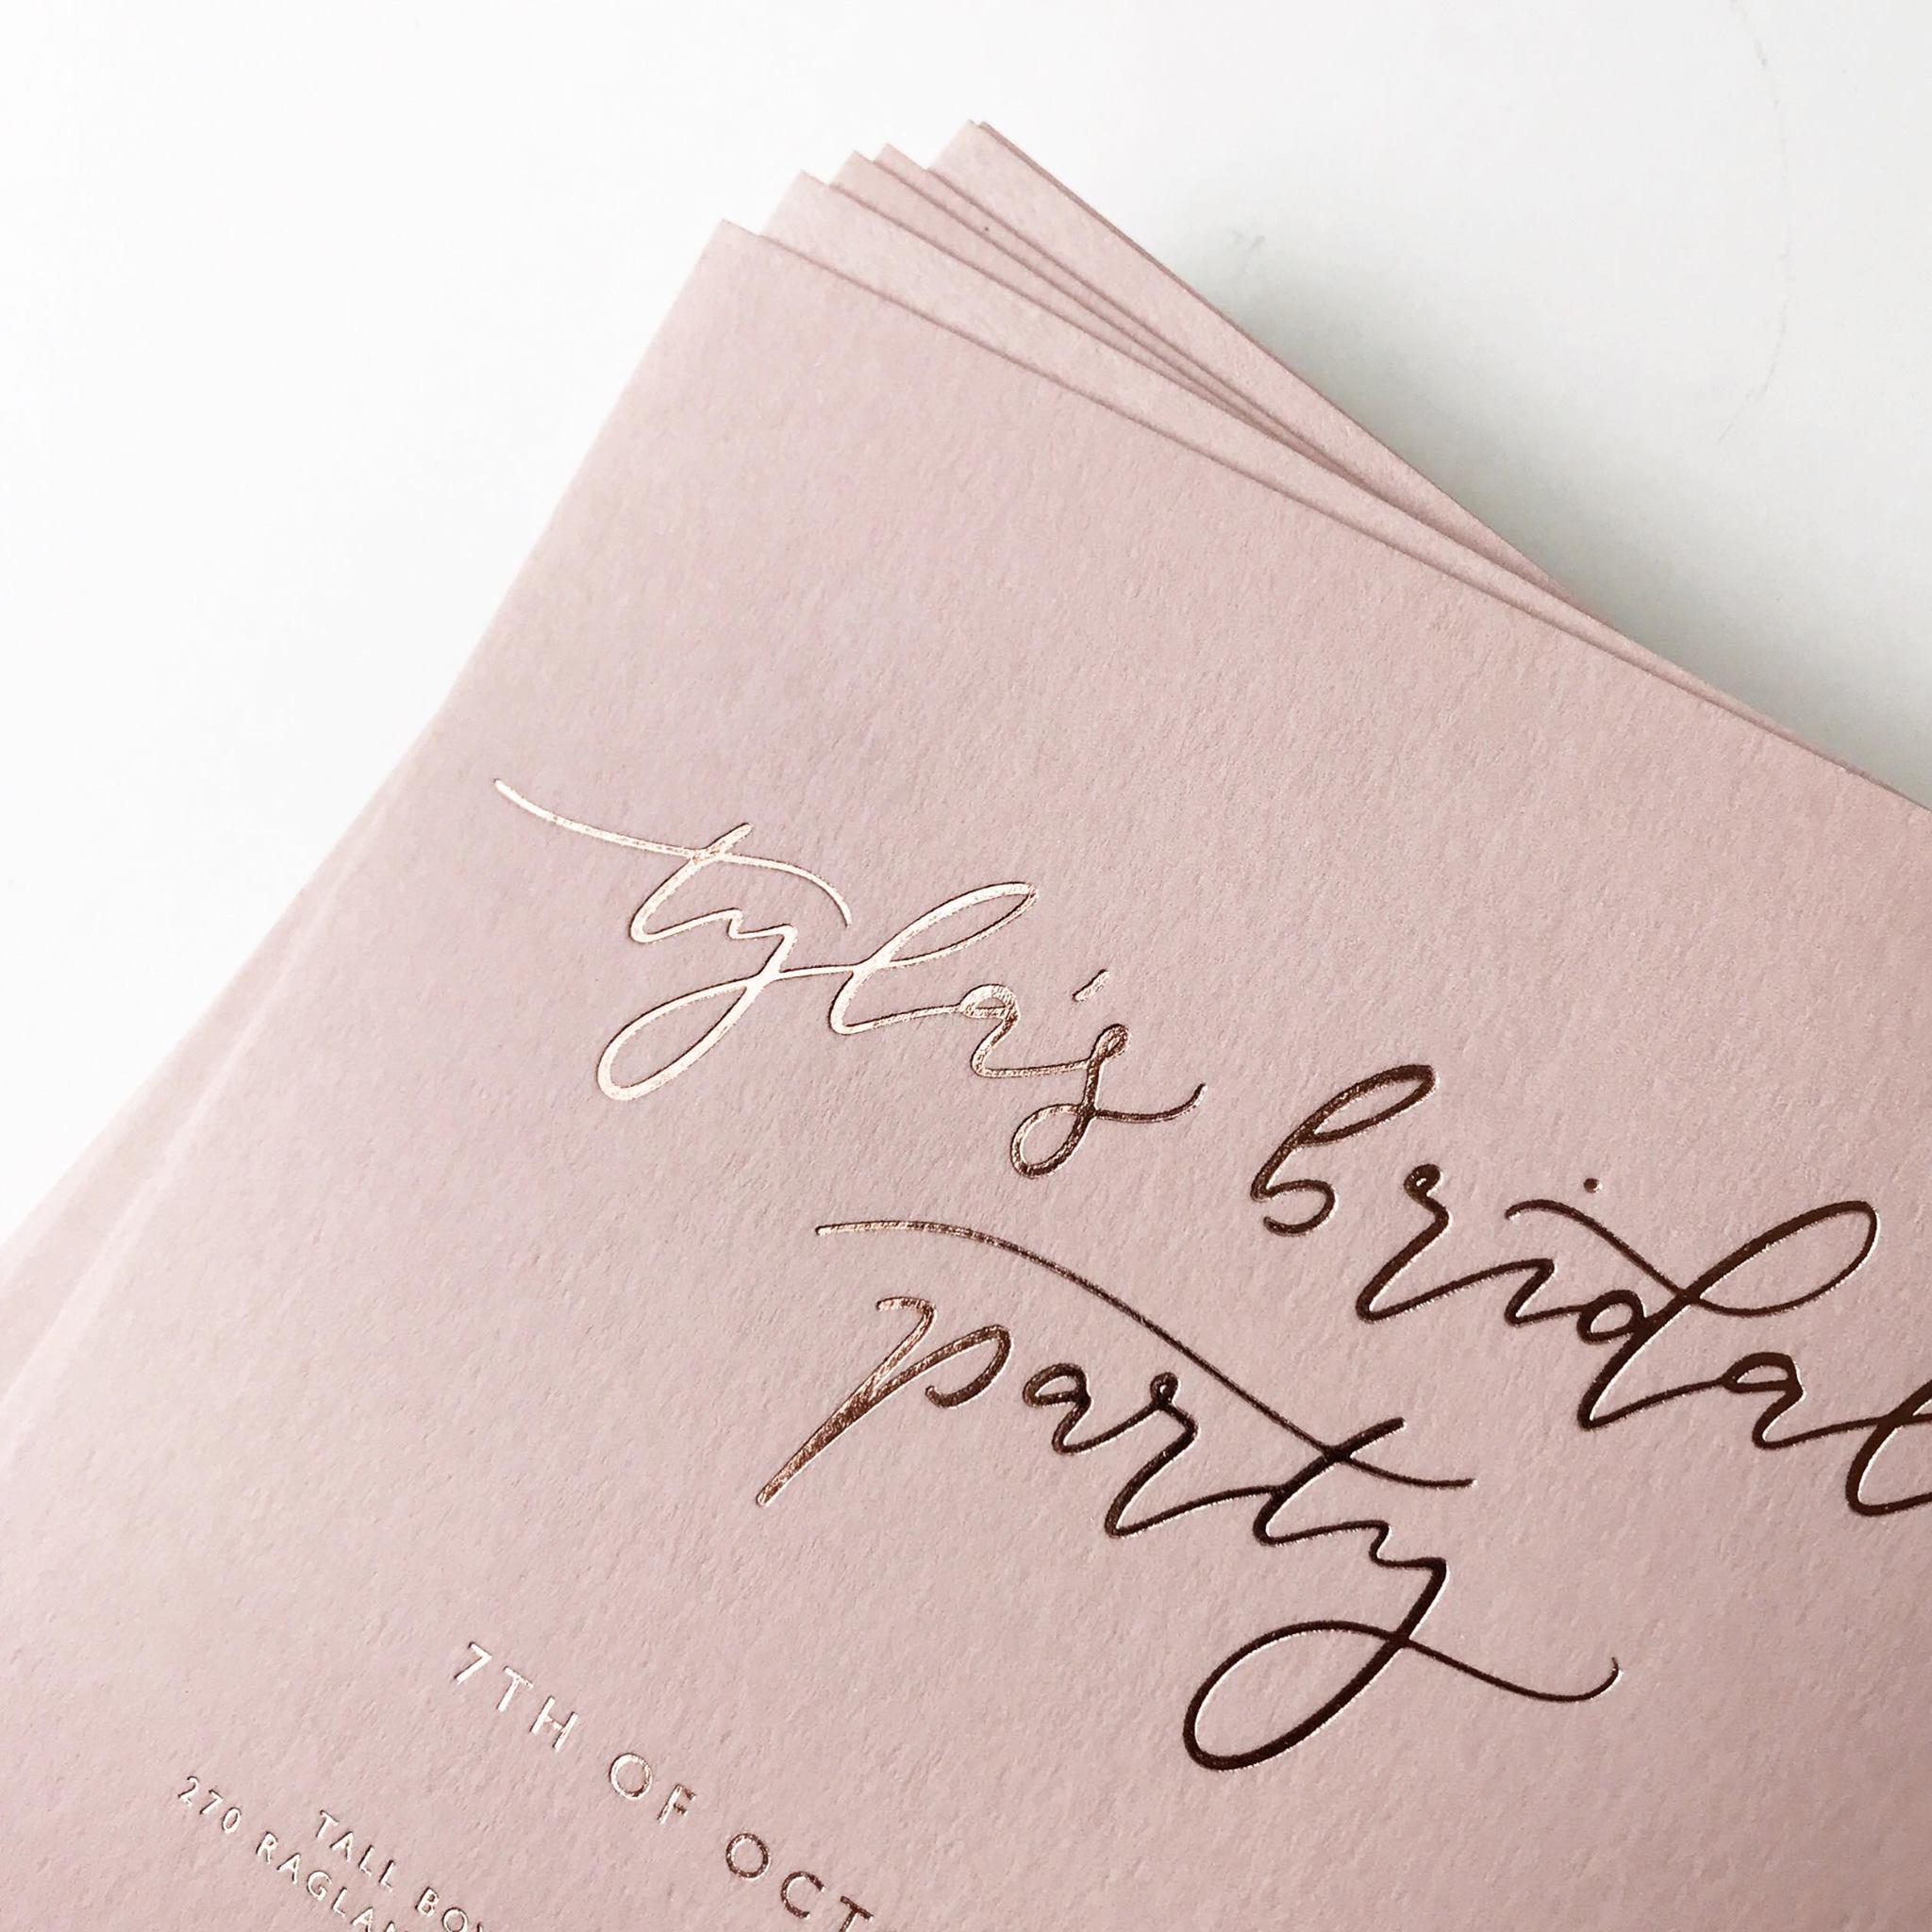 tyla's bridal
party
7TH OF OCT
TALL BOY
270 RAGLAN